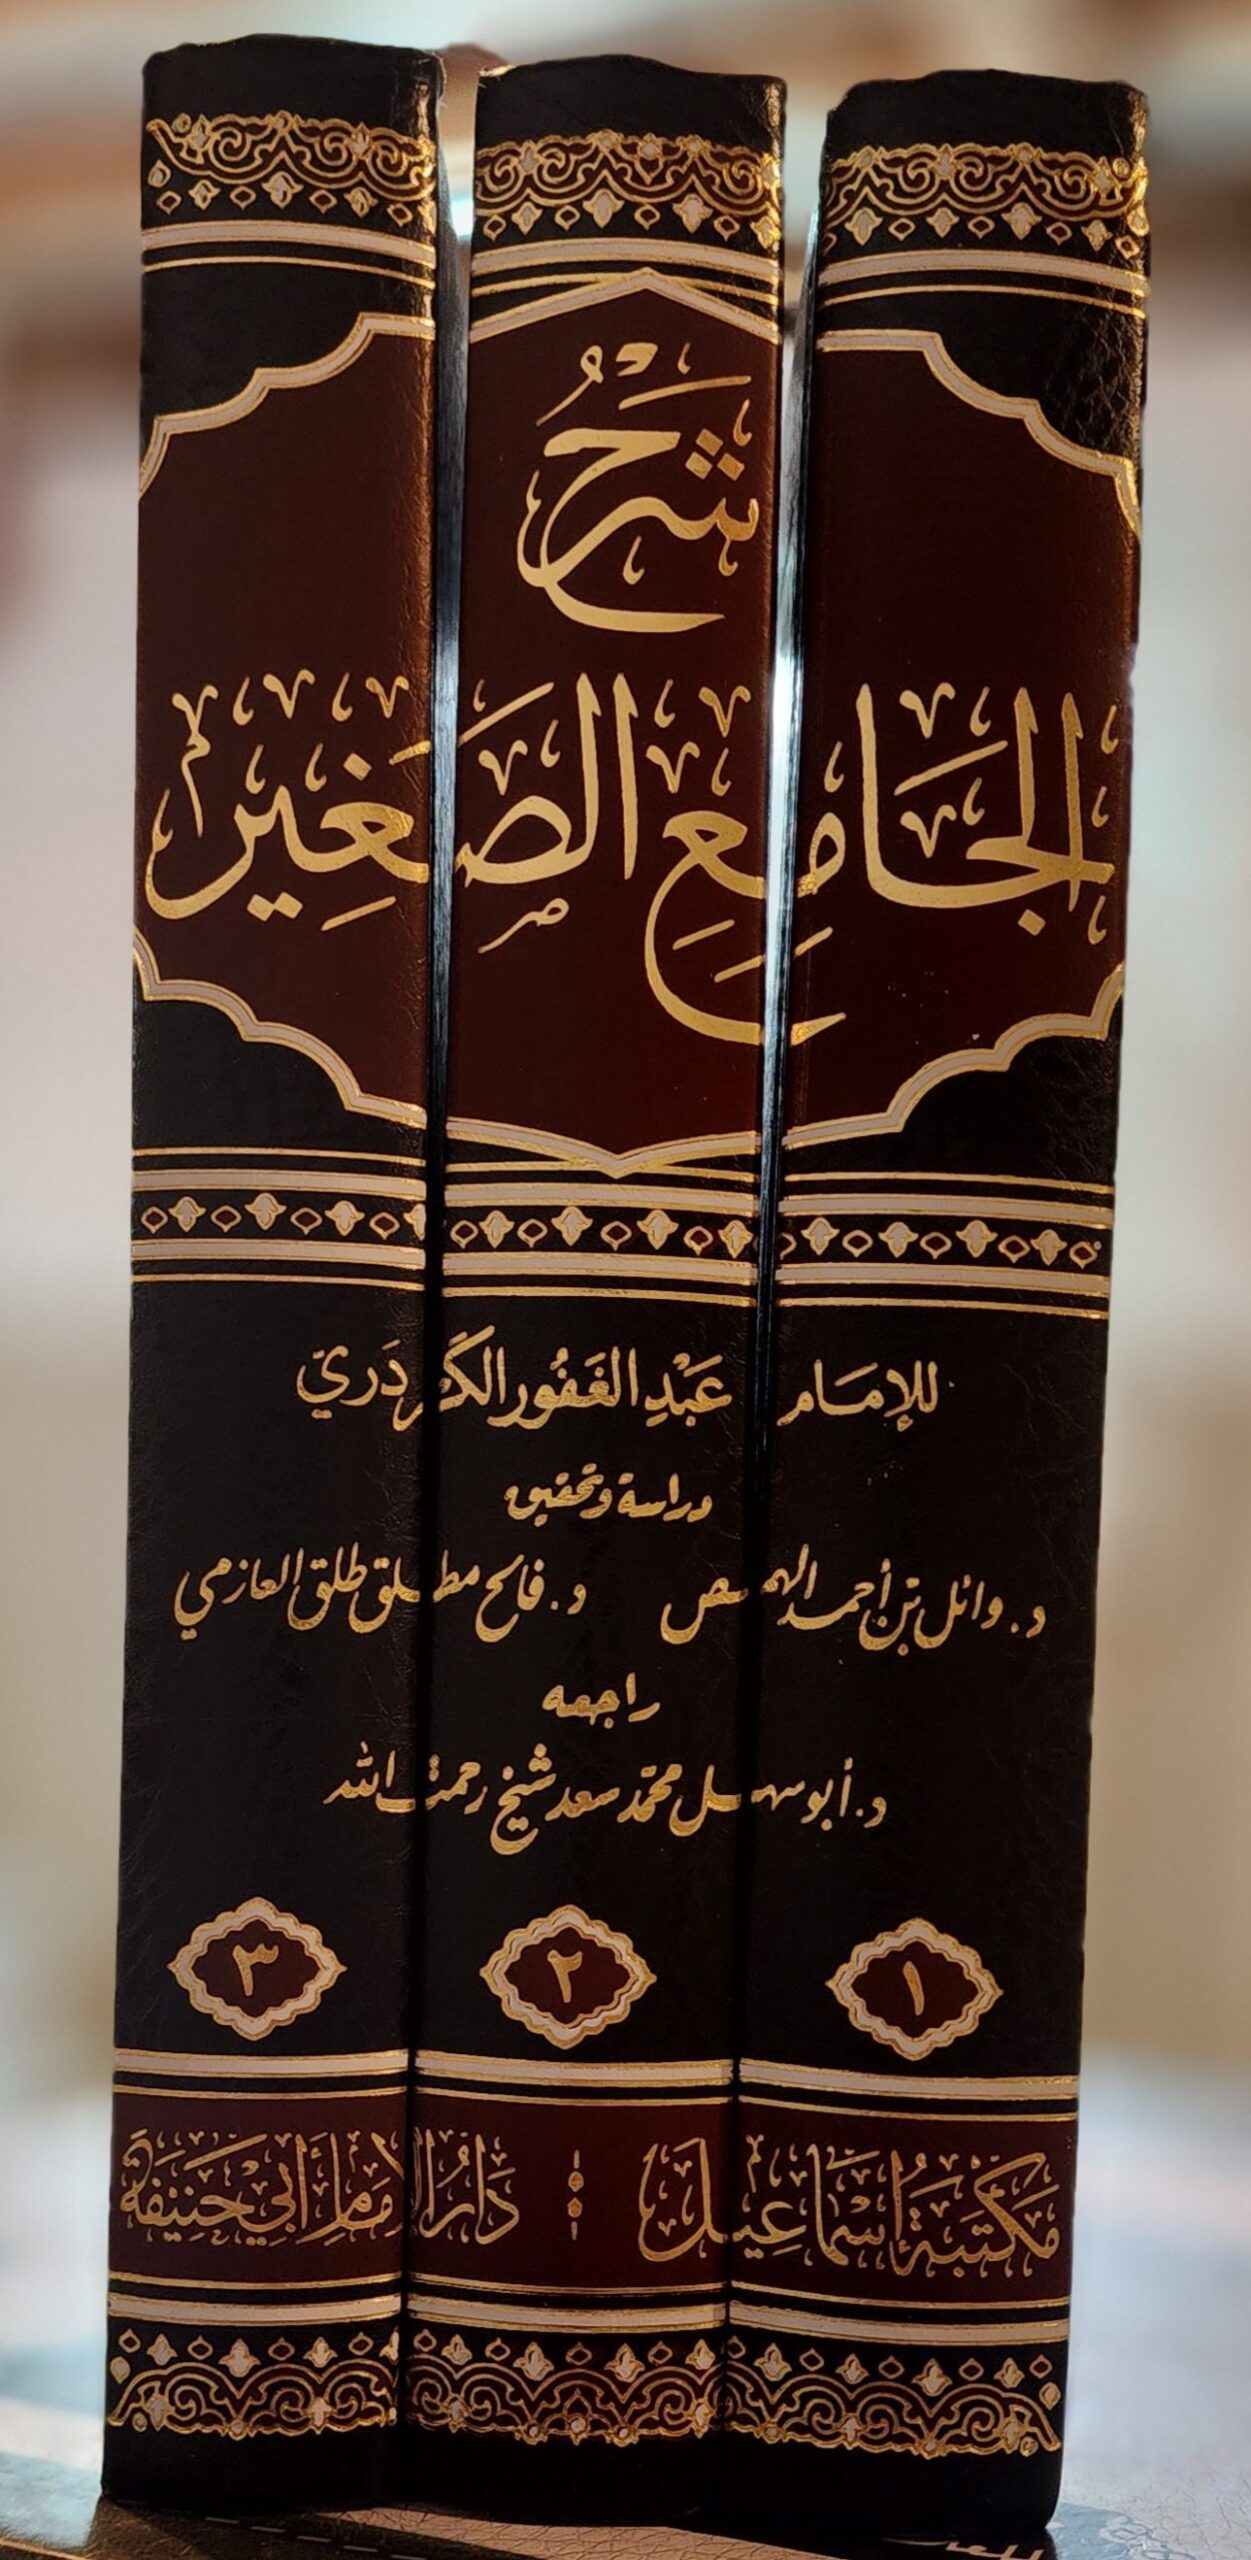 شَرْحُ
الجَامِعِ الصَّغِيرِ
للإمَام عَبْدِ الغَفُورِ الكَرْدَرِيّ
دراسة وتحقيق
د. وائل بن أحمد الهمص د. فالح مطلق طلق العازمي
راجعه
د. أبو سهل محمد سعد شيخ رحمت الله
١ ٢ ٣
مَكْتَبَةُ إسْمَاعِيل دَارُ الإمَامِ أَبِي حَنِيفَةَ